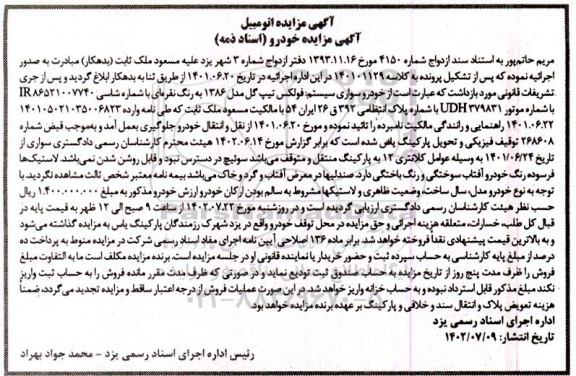 آگهی مزایده اتومبیل
آگهی مزایده خودرو (اسناد ذمه)
مریم حاتم‌پور به استناد سند ازدواج شماره ۴۱۵۰ مورخ ۱۳۹۳.۱۱.۱۶ دفتر ازدواج شماره ۳ شهر یزد علیه مسعود ملک ثابت (بدهکار) مبادرت به صدور
اجرائیه نموده که پس از تشکیل پرونده به کلاسه ۱۴۰۱۰۱۱۲۹ در این اداره اجرائیه در تاریخ ۱۴۰۱.۰۶.۲۰ از طریق ثنا به بدهکار ابلاغ گردید و پس از جری
تشریفات قانونی مورد بازداشت که عبارت است از خودرو سواری سیستم: فولکس تیپ گل مدل ۱۳۸۶ به رنگ نقره‌ای با شماره شاسی IR۸۶۵۲۱۰۰۷۷۴۰
با شماره موتور UDH۳۷۹۸۳۱ با شماره پلاک انتظامی ۳۹۲ ق ۲۶ ایران ۵۴ با مالکیت مسعود ملک ثابت که طی نامه وارده ۱۴۰۱۰۵۰۲۱۰۳۵۰۰۶۸۲۳
۱۴۰۱.۰۶.۲۲ راهنمایی و رانندگی مالکیت نامبرده را تائید نموده و مورخ ۱۴۰۱.۰۶.۲۰ از نقل و انتقال خودرو جلوگیری بعمل آمد و به‌موجب قبض شماره
۲۶۸۶۰۸ توقیف فیزیکی و تحویل پارکینگ یاض شده است که برابر گزارش مورخ ۱۴۰۲.۰۶.۱۴ هیئت محترم کارشناسان رسمی دادگستری سواری از
تاریخ ۱۴۰۱/۰۶/۲۴ به وسیله عوامل کلانتری ۱۲ به پارکینگ منتقل و متوقف می‌باشد سوئیچ در دسترس نبود و قابل روشن شدن نمی‌باشد. لاستیک‌ها
فرسوده رنگ خودرو آفتاب سوختگی و رنگ باختگی دارد. صندلیها در معرض آفتاب و گرد و خاک می‌باشد بیمه نامه معتبر شخص ثالث مشاهده نگردید. با
توجه به نوع خودرو مدل، سال ساخت، وضعیت ظاهری و لاستیکها مشروط به سالم بودن ارکان خودرو ارزش خودرو مذکور به مبلغ ۱.۴۰۰.۰۰۰.۰۰۰ ریال
حسب نظر هیئت کارشناسان رسمی دادگستری ارزیابی گردیده است و در روز شنبه مورخ ۱۴۰۲.۰۷.۲۲ از ساعت ۹ صبح الی ۱۲ ظهر به قیمت پایه در
قبال کل طلب، خسارات، متعلقه هزینه اجرائی و حق مزایده در محل توقف خودرو واقع در یزد شهرک رزمندگان پارکینگ یاس به مزایده گذاشته می‌شود
و به بالاترین قیمت پیشنهادی نقداً فروخته خواهد شد. برابر ماده ۱۳۶ اصلاحی آیین نامه اجرای مفاد اسناد رسمی شرکت در مزایده منوط به پرداخت ده
درصد از مبلغ پایه کارشناسی به حساب سپرده ثبت و حضور خریدار یا نماینده قانونی او در جلسه مزایده است. برنده مزایده مکلف است ما به التفاوت مبلغ
فروش را ظرف مدت پنج روز از تاریخ مزایده به حساب صندوق ثبت تودیع نماید و در صورتی که ظرف مدت مقرر مانده فروش را به حساب ثبت واریز
نکند مبلغ مذکور قابل استرداد نبوده و به حساب خزانه واریز خواهد شد. در این صورت عملیات فروش از درجه اعتبار ساقط و مزایده تجدید می‌گردد، ضمناً
هزینه تعویض پلاک و انتقال سند و خلافی و پارکینگ بر عهده خریدار برنده مزایده خواهد بود.
اداره اجرای اسناد رسمی یزد
تاریخ انتشار: ۱۴۰۲/۰۷/۰۹
رئیس اداره اجرای اسناد رسمی یزد - محمد جواد بهراد